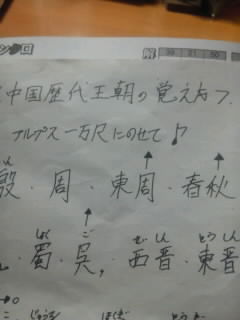 解 39 21 50
中国歴代王朝の覚え方つ
アルプス一万尺にのせて♪
殷・周・東周・春秋
しょく ご せい しん とう しん
蜀・呉,西晋・東晋